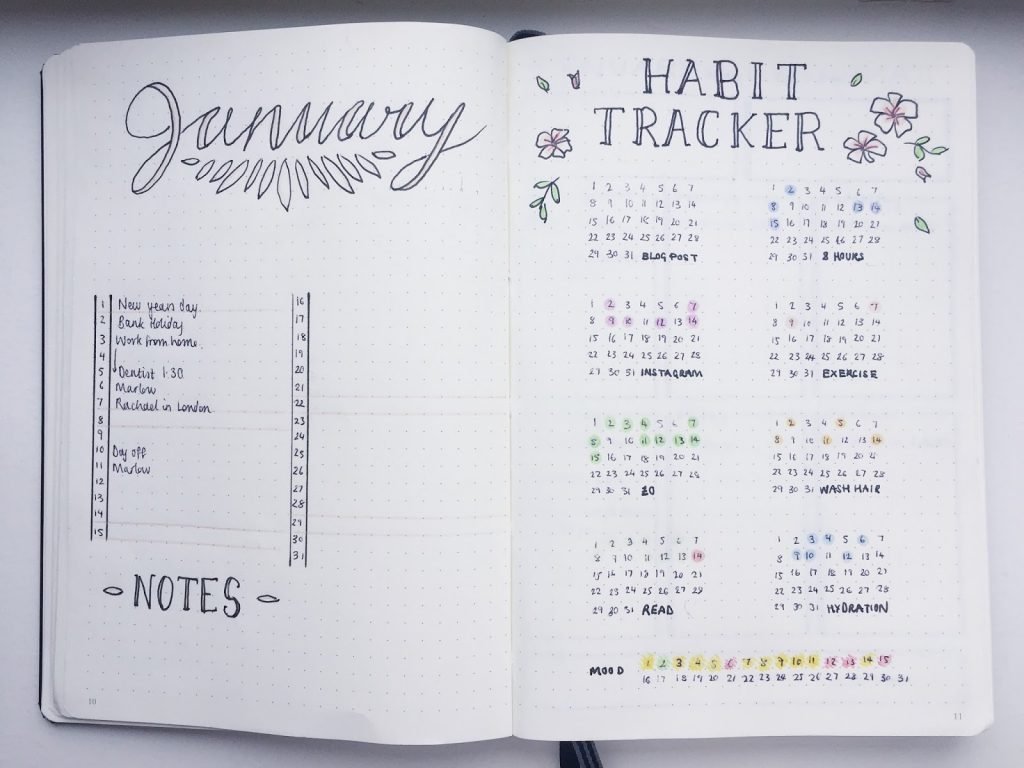 January
1 New years day
2 Bank Holiday
3 Work from home.
4
5 Dentist 1:30
6 Marlow
7 Rachael in London
8
9
10 Day off
11 Marlow
12
13
14
15
16
17
18
19
20
21
22
23
24
25
26
27
28
29
30
31
NOTES
10
HABIT
TRACKER
1 2 3 4 5 6 7
8 9 10 11 12 13 14
15 16 17 18 19 20 21
22 23 24 25 26 27 28
29 30 31 BLOG POST
1 2 3 4 5 6 7
8 9 10 11 12 13 14
15 16 17 18 19 20 21
22 23 24 25 26 27 28
29 30 31 8 HOURS
1 2 3 4 5 6 7
8 9 10 11 12 13 14
15 16 17 18 19 20 21
22 23 24 25 26 27 28
29 30 31 INSTAGRAM
1 2 3 4 5 6 7
8 9 10 11 12 13 14
15 16 17 18 19 20 21
22 23 24 25 26 27 28
29 30 31 EXERCISE
1 2 3 4 5 6 7
8 9 10 11 12 13 14
15 16 17 18 19 20 21
22 23 24 25 26 27 28
29 30 31 £0
1 2 3 4 5 6 7
8 9 10 11 12 13 14
15 16 17 18 19 20 21
22 23 24 25 26 27 28
29 30 31 WASH HAIR
1 2 3 4 5 6 7
8 9 10 11 12 13 14
15 16 17 18 19 20 21
22 23 24 25 26 27 28
29 30 31 READ
1 2 3 4 5 6 7
8 9 10 11 12 13 14
15 16 17 18 19 20 21
22 23 24 25 26 27 28
29 30 31 HYDRATION
MOOD
1 2 3 4 5 6 7 8 9 10 11 12 13 14 15
16 17 18 19 20 21 22 23 24 25 26 27 28 29 30 31
11